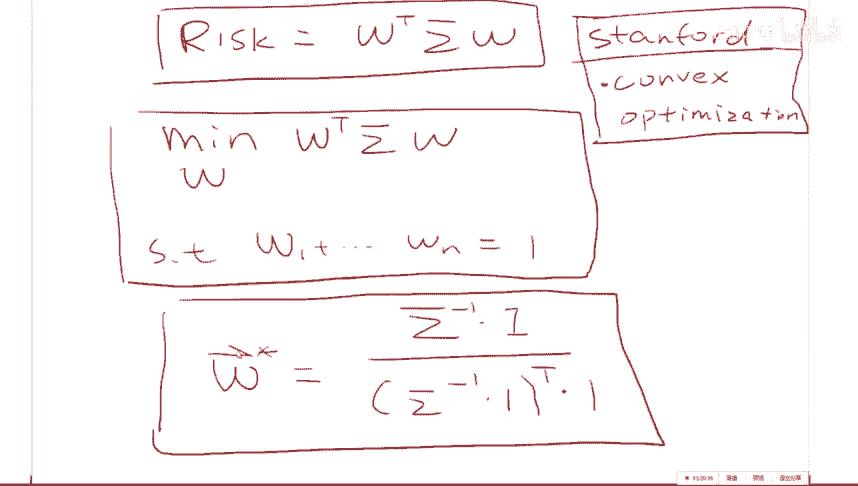 Risk = W^T Σ W
Stanford
• convex
optimization
min W^T Σ W
W
s.t W₁ + ··· Wₙ = 1
W⃗* = Σ⁻¹ · 1
(Σ⁻¹ · 1)^T · 1